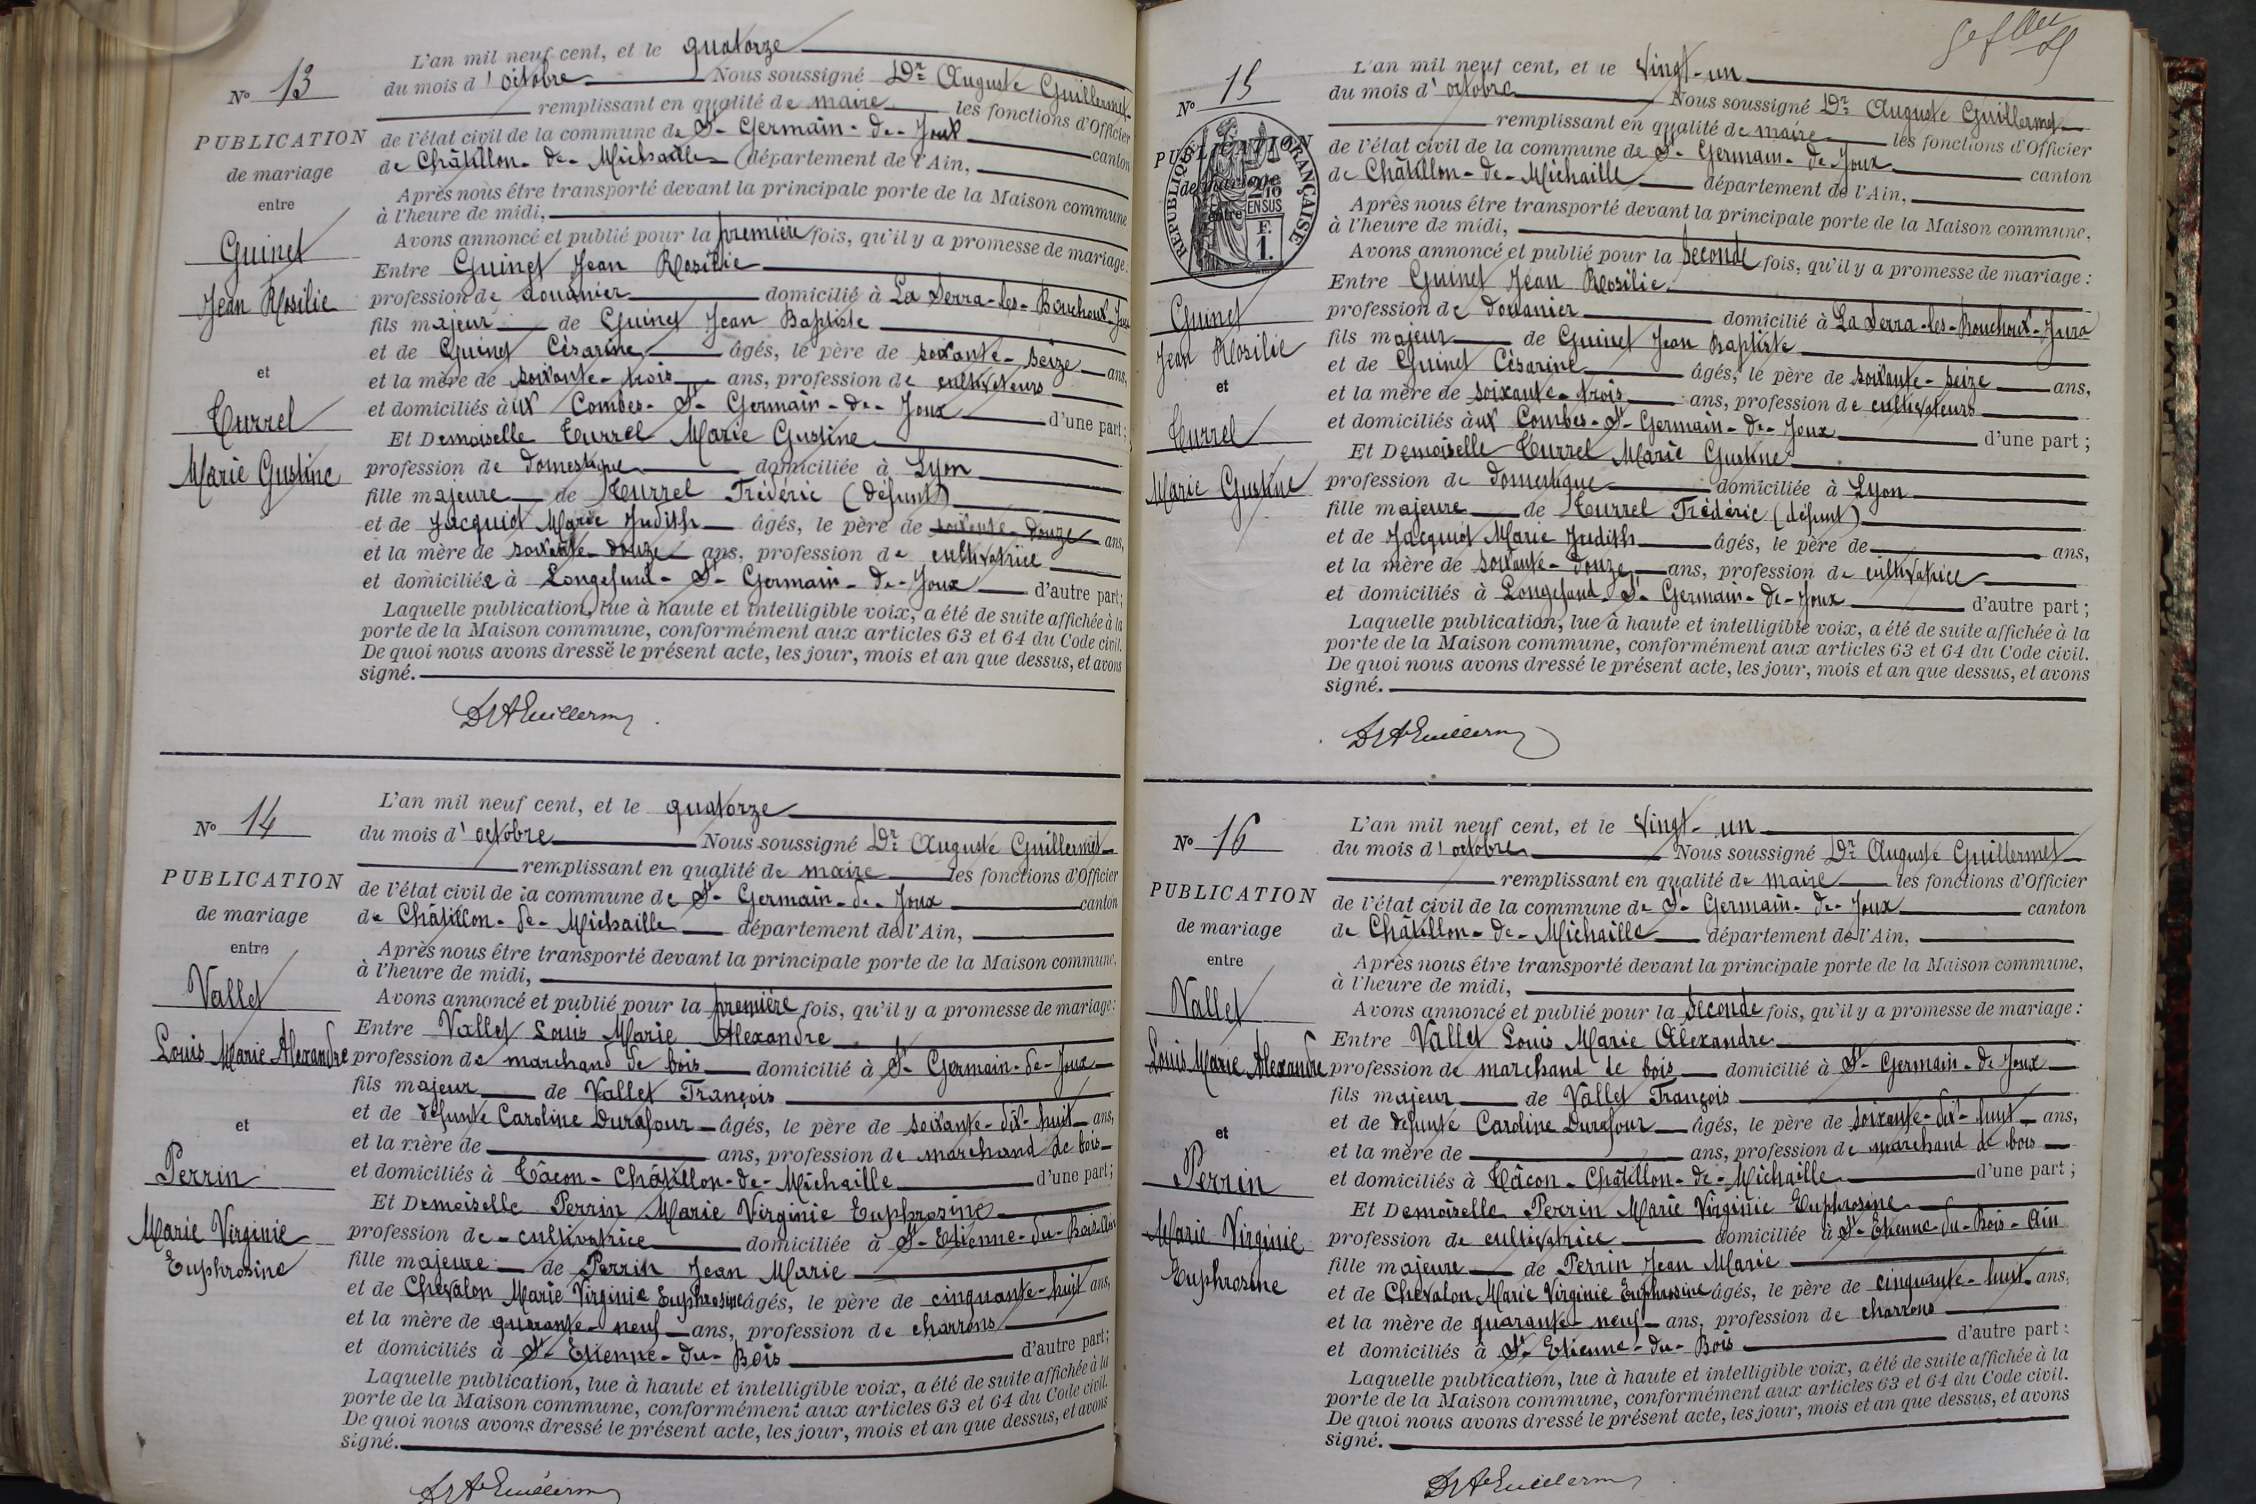 L'an mil neuf cent, et le quatorze
du mois d'octobre Nous soussigné Dr Auguste Guillermet
remplissant en qualité de maire les fonctions d'Officier
de l'état civil de la commune de St-Germain-de-Joux canton
de Châtillon-de-Michaille département de l'Ain,
Après nous être transporté devant la principale porte de la Maison commune,
à l'heure de midi,
Avons annoncé et publié pour la première fois, qu'il y a promesse de mariage:
Entre Guinet Jean Rosilie
profession de douanier domicilié à La Serra-les-Bouchoux-Jura
fils majeur de Guinet Jean Baptiste
et de Guinet Césarine âgés, le père de soixante-seize ans,
et la mère de soixante-trois ans, profession de cultivateurs
et domiciliés à ux Combes-St-Germain-de-Joux d'une part;
Et Demoiselle Turrel Marie Gustine
profession de domestique domiciliée à Lyon
fille majeure de Turrel Frédéric (défunt)
et de Jacquiot Marie Judith âgés, le père de soixante-douze ans,
et la mère de soixante-douze ans, profession de cultivatrice
et domiciliée à Longefand-St-Germain-de-Joux d'autre part;
Laquelle publication, lue à haute et intelligible voix, a été de suite affichée à la
porte de la Maison commune, conformément aux articles 63 et 64 du Code civil.
De quoi nous avons dressé le présent acte, les jour, mois et an que dessus, et avons
signé.
DrAGuillerm
No 13
PUBLICATION
de mariage
entre
Guinet
Jean Rosilie
et
Turrel
Marie Gustine
L'an mil neuf cent, et le quatorze
du mois d'octobre Nous soussigné Dr Auguste Guillermet
remplissant en qualité de maire les fonctions d'Officier
de l'état civil de la commune de St-Germain-de-Joux canton
de Châtillon-de-Michaille département de l'Ain,
Après nous être transporté devant la principale porte de la Maison commune,
à l'heure de midi,
Avons annoncé et publié pour la première fois, qu'il y a promesse de mariage:
Entre Vallet Louis Marie Alexandre
profession de marchand de bois domicilié à St-Germain-de-Joux
fils majeur de Vallet François
et de défunte Caroline Durafour âgés, le père de soixante-dix-huit ans,
et la mère de ans, profession de marchand de bois
et domiciliés à Tâcon-Châtillon-de-Michaille d'une part;
Et Demoiselle Perrin Marie Virginie Euphrosine
profession de cultivatrice domiciliée à St-Etienne-du-Bois
fille majeure de Perrin Jean Marie
et de Chevalon Marie Virginie Euphrosine âgés, le père de cinquante-huit ans,
et la mère de quarante-neuf ans, profession de charrons
et domiciliés à St-Etienne-du-Bois d'autre part;
Laquelle publication, lue à haute et intelligible voix, a été de suite affichée à la
porte de la Maison commune, conformément aux articles 63 et 64 du Code civil.
De quoi nous avons dressé le présent acte, les jour, mois et an que dessus, et avons
signé.
DrAGuillerm
No 14
PUBLICATION
de mariage
entre
Vallet
Louis Marie Alexandre
et
Perrin
Marie Virginie
Euphrosine
L'an mil neuf cent, et le vingt-un
du mois d'octobre Nous soussigné Dr Auguste Guillermet
remplissant en qualité de maire les fonctions d'Officier
de l'état civil de la commune de St-Germain-de-Joux canton
de Châtillon-de-Michaille département de l'Ain,
Après nous être transporté devant la principale porte de la Maison commune,
à l'heure de midi,
Avons annoncé et publié pour la seconde fois, qu'il y a promesse de mariage:
Entre Guinet Jean Rosilie
profession de douanier domicilié à La Serra-les-Bouchoux-Jura
fils majeur de Guinet Jean Baptiste
et de Guinet Césarine âgés, le père de soixante-seize ans,
et la mère de soixante-trois ans, profession de cultivateurs
et domiciliés à ux Combes-St-Germain-de-Joux d'une part;
Et Demoiselle Turrel Marie Gustine
profession de domestique domiciliée à Lyon
fille majeure de Turrel Frédéric (défunt)
et de Jacquiot Marie Judith âgés, le père de ans,
et la mère de soixante-douze ans, profession de cultivatrice
et domiciliés à Longefand-St-Germain-de-Joux d'autre part;
Laquelle publication, lue à haute et intelligible voix, a été de suite affichée à la
porte de la Maison commune, conformément aux articles 63 et 64 du Code civil.
De quoi nous avons dressé le présent acte, les jour, mois et an que dessus, et avons
signé.
DrAGuillerm
No 15
PUBLICATION
de mariage
entre
RÉPUBLIQUE FRANÇAISE
2/10
EN SUS
F.
1.
Guinet
Jean Rosilie
et
Turrel
Marie Gustine
L'an mil neuf cent, et le vingt-un
du mois d'octobre Nous soussigné Dr Auguste Guillermet
remplissant en qualité de maire les fonctions d'Officier
de l'état civil de la commune de St-Germain-de-Joux canton
de Châtillon-de-Michaille département de l'Ain,
Après nous être transporté devant la principale porte de la Maison commune,
à l'heure de midi,
Avons annoncé et publié pour la seconde fois, qu'il y a promesse de mariage:
Entre Vallet Louis Marie Alexandre
profession de marchand de bois domicilié à St-Germain-de-Joux
fils majeur de Vallet François
et de défunte Caroline Durafour âgés, le père de soixante-dix-huit ans,
et la mère de ans, profession de marchand de bois
et domiciliés à Tâcon-Châtillon-de-Michaille d'une part;
Et Demoiselle Perrin Marie Virginie Euphrosine
profession de cultivatrice domiciliée à St-Etienne-du-Bois-Ain
fille majeure de Perrin Jean Marie
et de Chevalon Marie Virginie Euphrosine âgés, le père de cinquante-huit ans,
et la mère de quarante-neuf ans, profession de charrons
et domiciliés à St-Etienne-du-Bois d'autre part:
Laquelle publication, lue à haute et intelligible voix, a été de suite affichée à la
porte de la Maison commune, conformément aux articles 63 et 64 du Code civil.
De quoi nous avons dressé le présent acte, les jour, mois et an que dessus, et avons
signé.
DrAGuillerm
No 16
PUBLICATION
de mariage
entre
Vallet
Louis Marie Alexandre
et
Perrin
Marie Virginie
Euphrosine